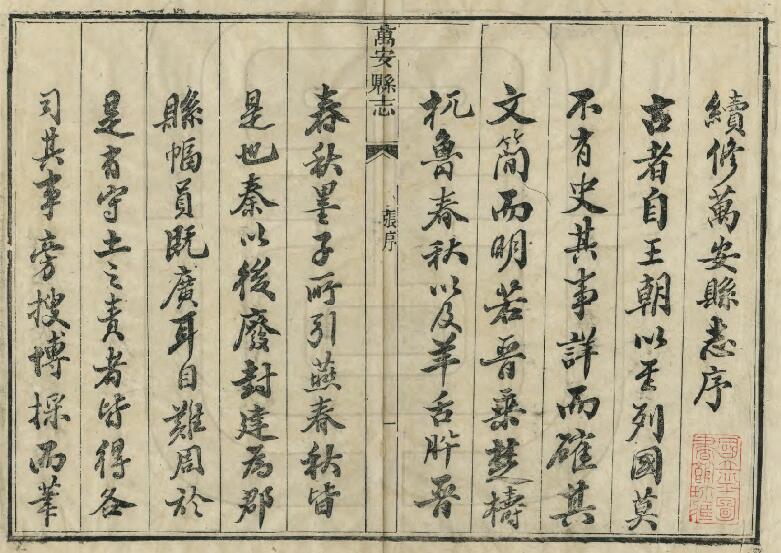 續修萬安縣志序
古者自王朝以至列國莫
不有史其事詳而確其
文簡而明若晉乗楚檮
杌魯春秋以及羊舌肸晉
萬安縣志
張序
一
春秋墨子所引燕春秋皆
是也秦以後廢封建為郡
縣幅員既廣耳目難周於
是有守土之責者皆得各
司其事旁搜博採而筆